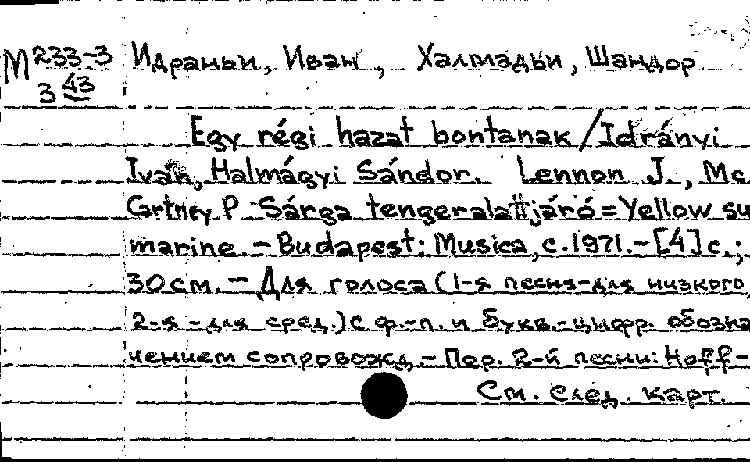 М 233-3 Идраньи, Иван, Халмадьи, Шандор
3 43
Egy régi hazat bontanak / Idrányi
Iván, Halmágyi Sándor. Lennon J., Mc
Cartney P. Sárga tengeralattjáró = Yellow su
marine. - Budapest: Musica, c. 1971. - [4] c.;
30 см. - Для голоса (1-я песня-для низкого,
2-я - для сред.) с ф.-п. и букв.-цифр. обозна
чением сопровожд. - Пер. 2-й песни: Hoff-
См. след. карт.